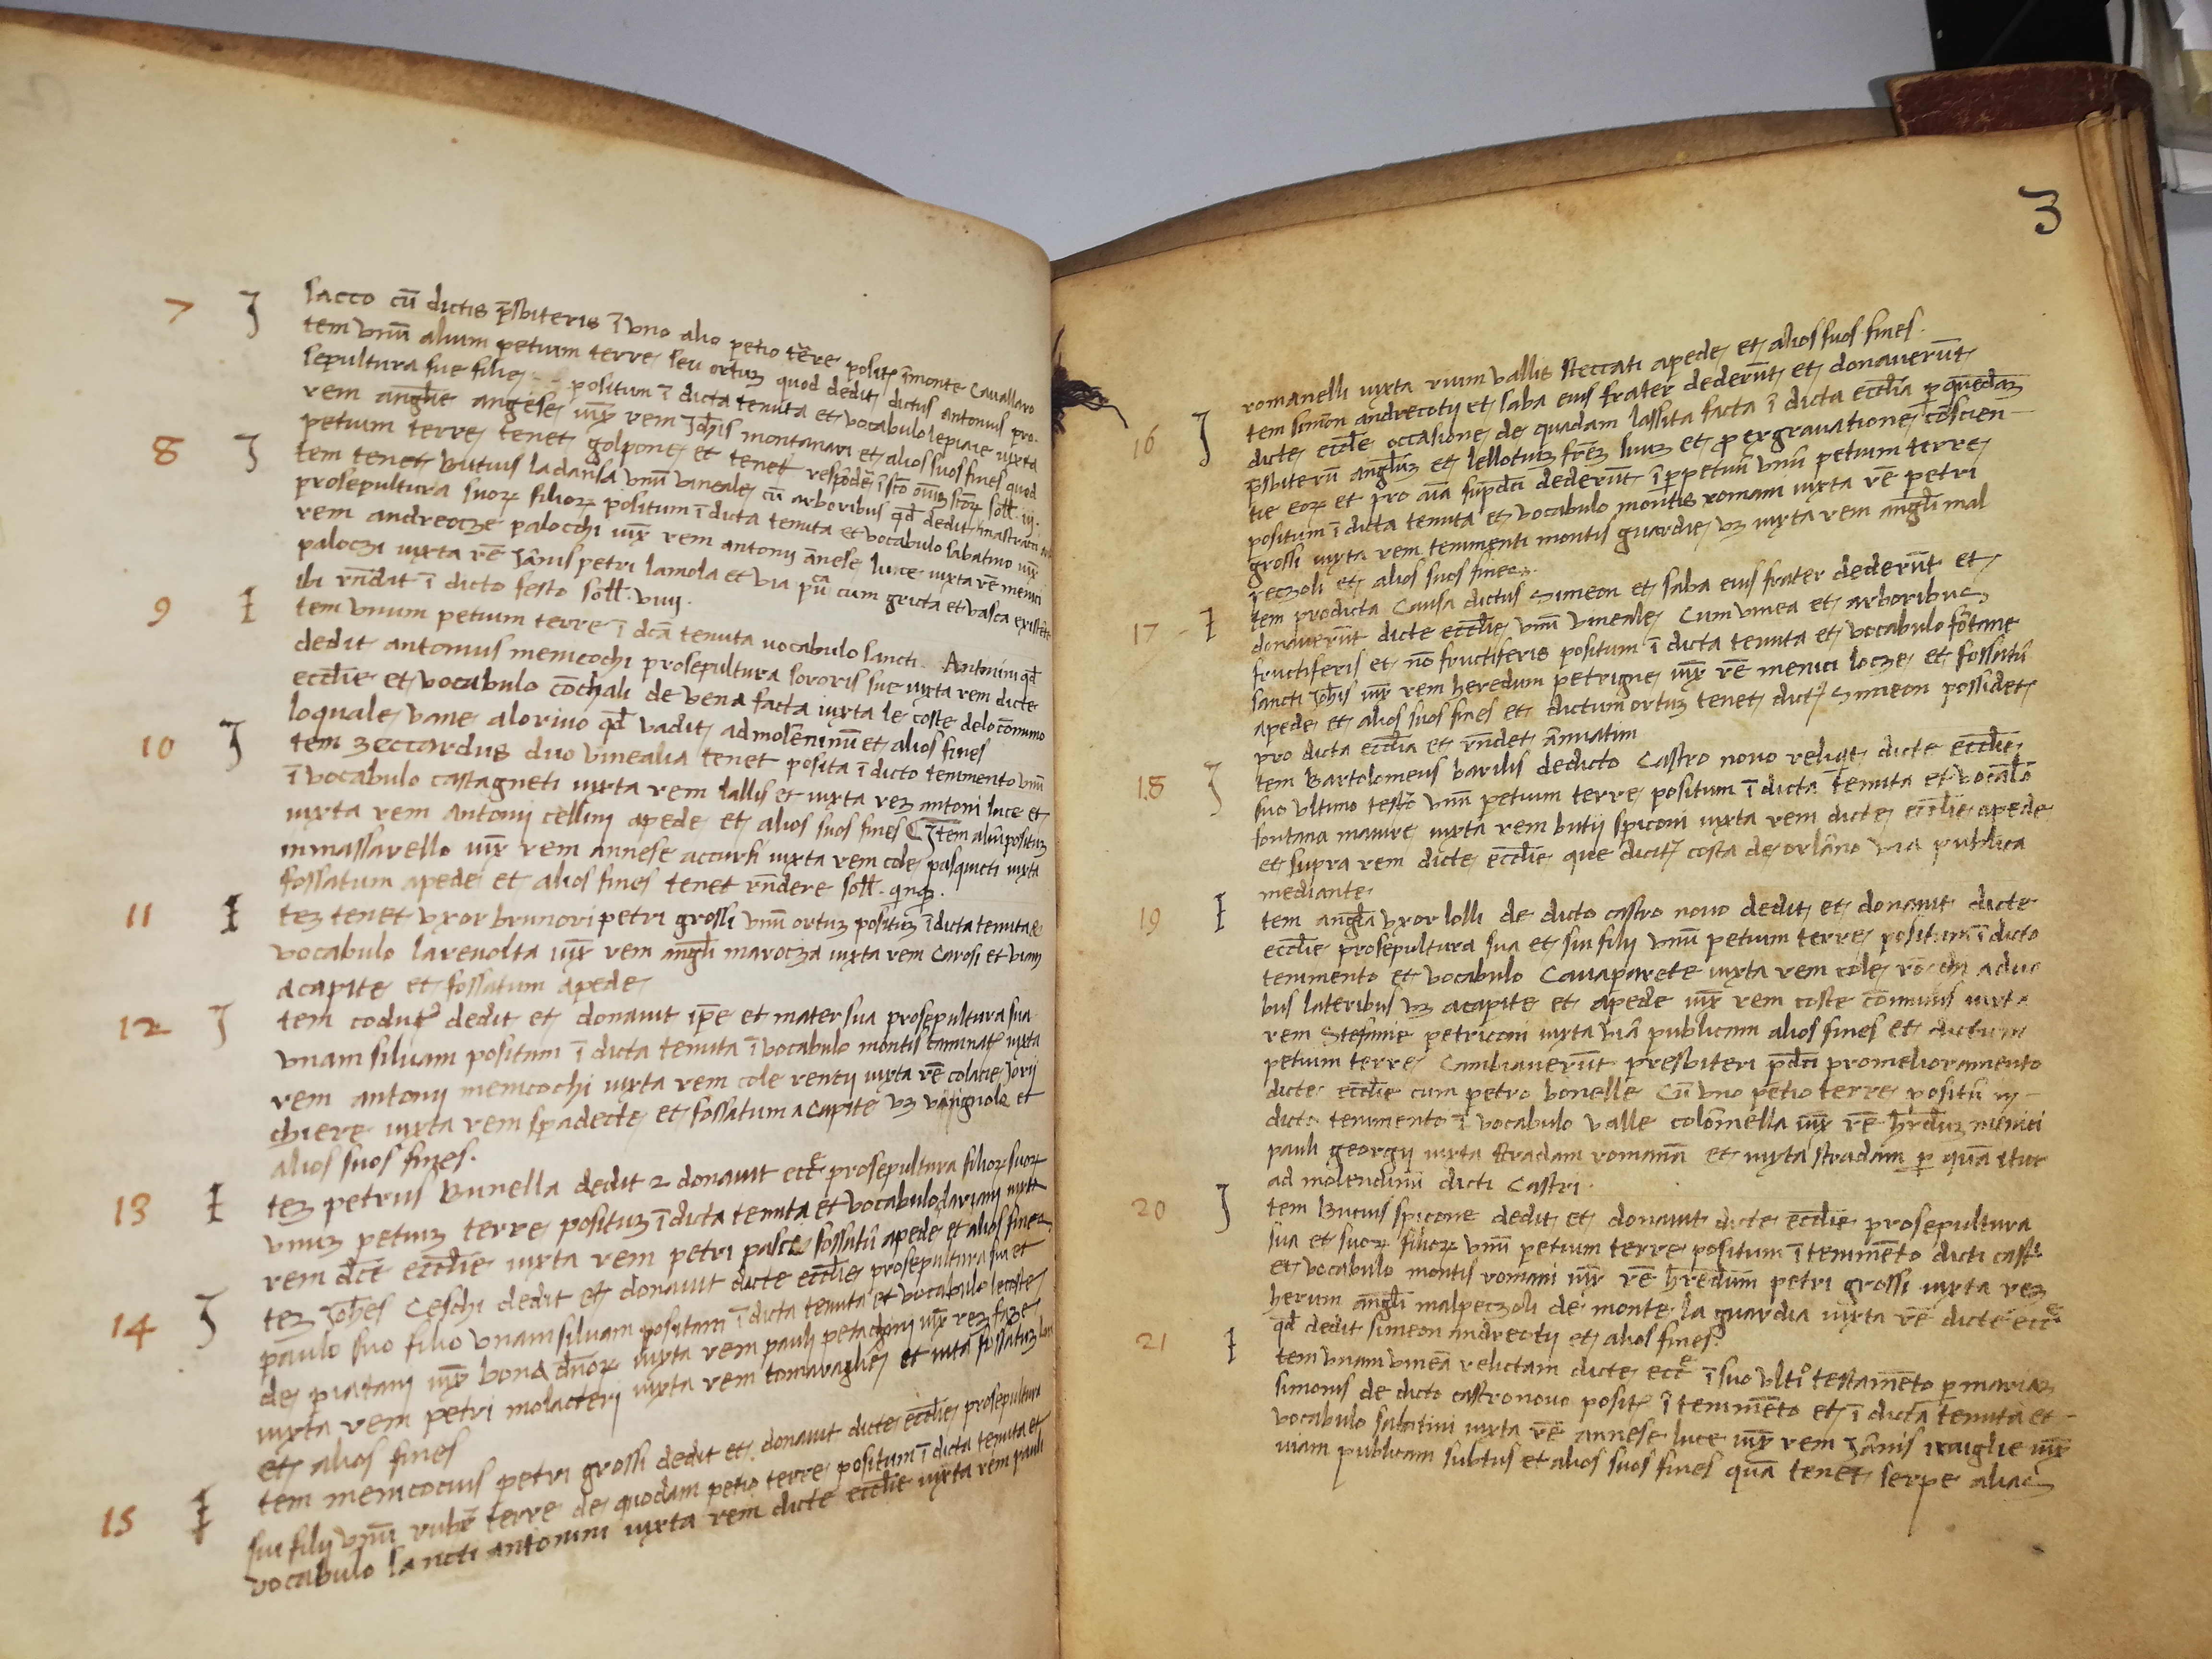 7 J sacco cū dictis p̄sbiteris ī uno alio petio tērre posit̄ ī monte Cavallaro
tem unū alium petium terre seu ortuȝ quod dedit dictus antonius pro
sepultura sue filie positum ī dicta tenuta et vocabulo lepiaie iuxta
rem angl̄e angese iux̄ rem Joh̄is montanari et alios suos fines quod
petium terre tenet golpone et tenet respōdē ī festo oīuȝ sc̄toꝝ soll. iij.
8 J tem tenet butius ladansa unū vineale cū arboribus qd̄ dedit mastrati
prosepultura suoꝝ filioꝝ positum ī dicta tenuta et vocabulo sabatino iux̄
rem andreocze palocchi iux̄ rem antonij ānese luce iuxta rē menici
paloczi iuxta rē Jānis petri lamola et via pu͞ca cum gricta et vasca existēte
ibi rn̄dit ī dicto festo soll. viiij.
9 I tem unum petium terre ī dc̄a tenuta vocabulo sancti Antonini qd̄
dedit antonius menicochi prosepultura sororis sue iuxta rem dicte
eccl̄ie et vocabulo cōchali de vena facta iuxta le coste delo cōmuno
loquale vane alorivo qd̄ vadit ad molēninū et alios fines
10 J tem zeccardus duo vinealia tenet posita ī dicto tenimento unū
ī vocabulo castagneti iuxta rem lallis et iuxta reȝ antoni luce et
iuxta rem antonij cellini apede et alios suos fines Item aliū posituȝ
inmassarello iux̄ rem annese accursi iuxta rem cole pasquicti iuxta
fossatum apede et alios fines tenet rn̄dere soll. qinq̄.
11 I teȝ tenet uxor brunori petri grossi unū ortuȝ posituȝ ī dicta tenuta et
vocabulo larevolta iux̄ rem angl̄i marocza iuxta rem Carosi et viam
acapite et fossatum apede
12 J tem coduti⁹ dedit et donavit ip̄e et mater sua prosepultura sua
unam silvam positam ī dicta tenuta ī vocabulo montis caminat̄ iuxta
rem antonij menicochi iuxta rem cole rentij iuxta rē colacie Jorij
chiere iuxta rem spadecte et fossatum acapite uȝ vangnole et
alios suos fines.
13 I teȝ petrus Bunella dedit ⁊ donavit ecc̄e prosepultura filioꝝ suoꝝ
unuȝ petiuȝ terre posituȝ ī dicta tenuta et vocabulo dariani iuxta
rem dc̄e eccl̄ie iuxta rem petri pasce fossatū apede et alios fines
14 J teȝ Joh̄es Ceschi dedit et donavit dicte eccl̄ie prosepultura sua et
paulo suo filio unam silvam positam ī dicta tenuta et vocabulo lecoste
de piatani iux̄ bona dn̄oꝝ iuxta rem pauli petachini iux̄ reȝ faze
iuxta rem petri molacteri iuxta rem tomaraglie et iuxta fossatuȝ
et alios fines
15 I tem menicocius petri grossi dedit et donavit dicte eccl̄ie prosepultura
sui filij unū rubr̄ terre de quodam petio terre positum ī dicta tenuta et
vocabulo sancti antonini iuxta rem dicte eccl̄ie iuxta rem pauli
3
romanelli iuxta rium vallis steccati apede et alios suos fines.
16 J tem simōn andreotij et saba eius frater dederūt et donaverūt
dicte eccl̄e occasione de quadam lassita facta ī dicta eccl̄ia p quēdaȝ
p̄sbiterū angl̄uȝ et lellotuȝ fr̄eȝ suuȝ et pro exgravatione cōscien-
tie eoꝝ et pro aīa sup̄dc̄i dederūt ī p̄petuū unū petium terre
positum ī dicta tenuta et vocabulo montis romani iuxta rē petri
grossi iuxta rem tenimenti montis guardie uȝ iuxta rem angl̄i mal
peczoli et alios suos fines.
17 I tem prodicta Causa dictus Simeon et saba eius frater dederūt et
donaverūt dicte eccl̄ie unū vineale Cum vinea et arboribus
fructiferis et nō fructiferis positum ī dicta tenuta et vocabulo fōtane
sancti Joh̄is iux̄ rem heredum petrigne iux̄ rē menici locze et fossatū
apede et alios suos fines et dictum ortuȝ tenet dict⁹ Simeon possidet
pro dicta eccl̄ia et rn̄det ānuatim
18 J tem Bartolomeus barilis dedicto Castro novo reliqit dicte eccl̄ie
suo ultimo test̄o unū petium terre positum ī dicta tenuta et vocabl̄o
fontana maiure iuxta rem butij spiconi iuxta rem dicte eccl̄ie apede
et supra rem dicte eccl̄ie que dicit̄ costa de orlāno via publica
mediante
19 I tem angl̄a uxor lolli de dicto castro novo dedit et donavit dicte
eccl̄ie prosepultura sua et sui filij unū petium terre positum ī dicto
tenimento et vocabulo Cavaparete iuxta rem cole rōchi aduo
bus lateribus uȝ acapite et apede iux̄ rem coste cōmunis iuxta
rem Stefanie petriconi iuxta viā publicam alios fines et dictum
petium terre Cambiaverūt presbiteri p̄dc̄i promelioramento
dicte eccl̄ie cum petro bonelle Cū uno petio terre positū in
dicto tenimento ī vocabulo valle colōmella iux̄ rē h̄rduȝ menici
pauli georgij iuxta stradam romanā et iuxta stradam p quā itur
ad molendinū dicti Castri.
20 J tem Bucius spicone dedit et donavit dicte eccl̄ie prosepultura
sua et suoꝝ filioꝝ unū petium terre positum ī tenimēto dicti castri
et vocabulo montis romani iux̄ rē h̄redum petri grossi iuxta reȝ
herum angl̄i malpeczoli de monte la guardia iuxta rē dicte ecc̄e
qd̄ dedit simeon andreotij et alios fines.
21 I tem unam vineā relictam dicte ecc̄e ī suo ulti⁰ testamēto p mariaȝ
simonis de dicto castronovo posit̄ ī tenimēto et ī dicta tenuta et
vocabulo sabatini iuxta rē annese luce iux̄ rem Jānis iraiglie iux̄
viam publicam subtus et alios suos fines quā tenet serpe alias